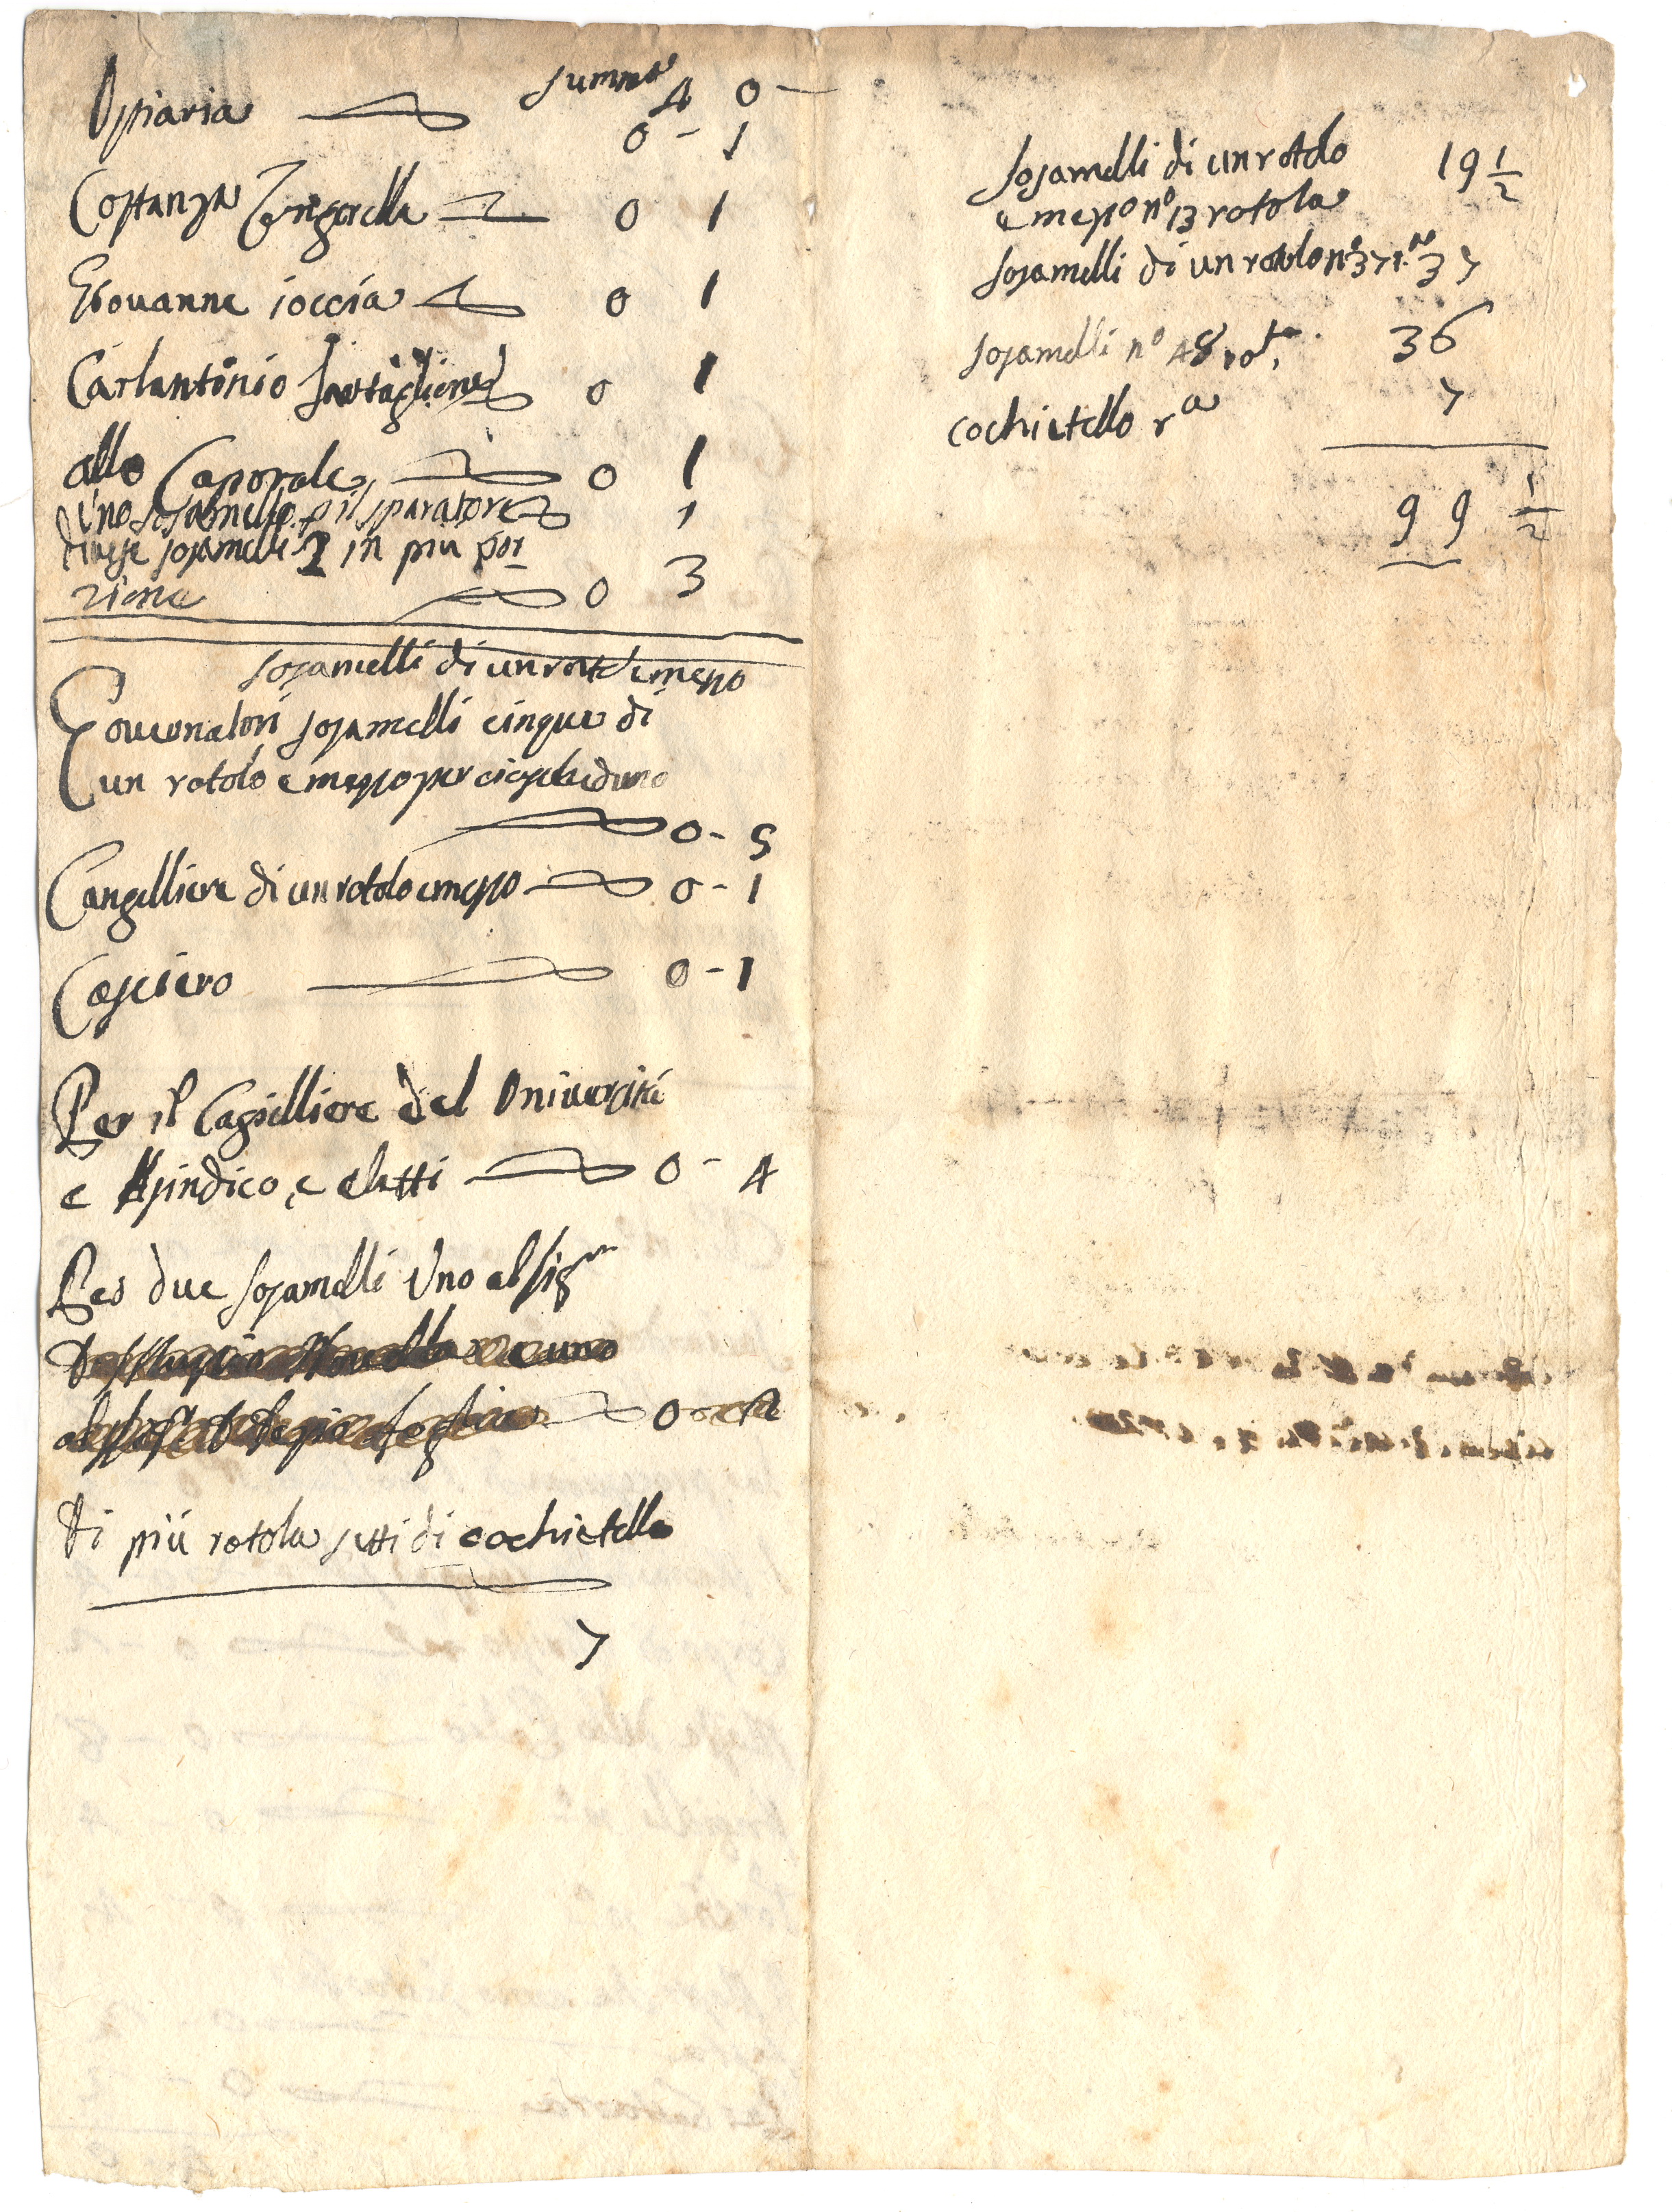 summa 4 0 -
Ostiaria 0 - 1
Costanza Zengarella 0 1
Giouanne ioccia 0 1
Carlantonio 0 1
allo Caporale 0 1
Uno sosamello p il sparatore 1
diuese sosamelli 2 in piu por
zione 0 3
sosamelli di un rotolo e mezzo
Gouernatori sosamelli cinque di
un rotolo e mezzo per ciascheduno
0 - 5
Cangelliere di un rotolo e mezzo 0 - 1
Casciero 0 - 1
Per il Cagielliere del Oniuersità
e sindico, e eletti 0 - 4
Per due sosamelli Uno al sigr
e uno
0
Di più rotola setti di cochietella
7
sosamelli di un rotolo 19 1/2
e mezzo no 13 rotola
sosamelli di un rotolo no 37 ro 37
sosamelli no 48 rota 36
cochietello ra 7
99 1/2